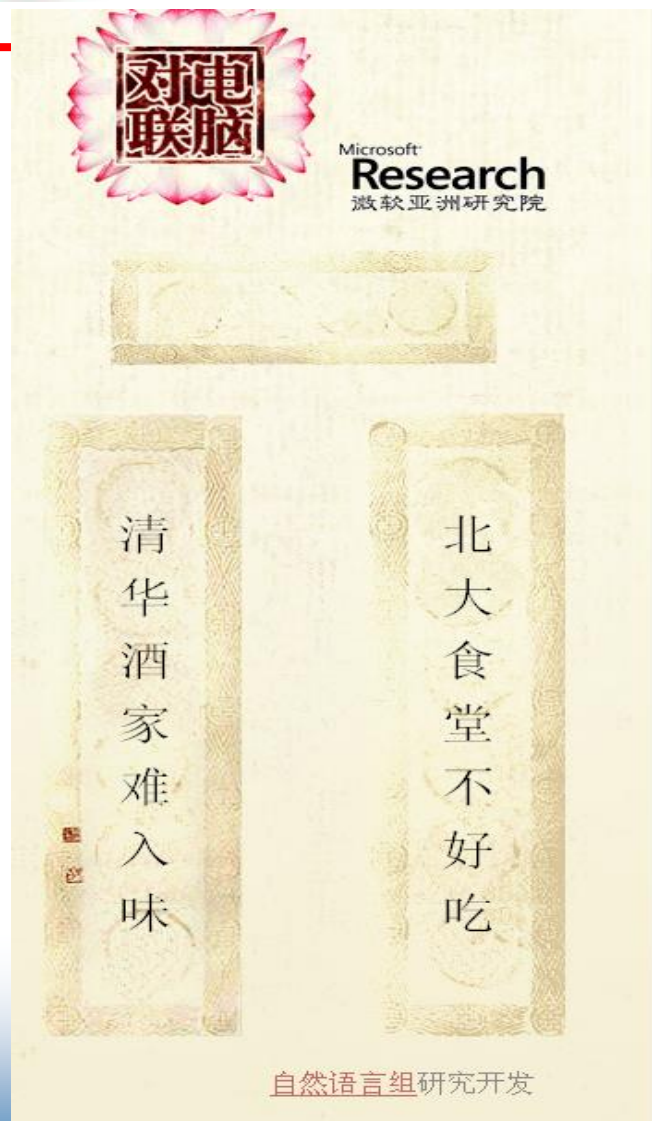 电脑
对联
Microsoft
Research
微软亚洲研究院
北大食堂不好吃
清华酒家难入味
自然语言组研究开发